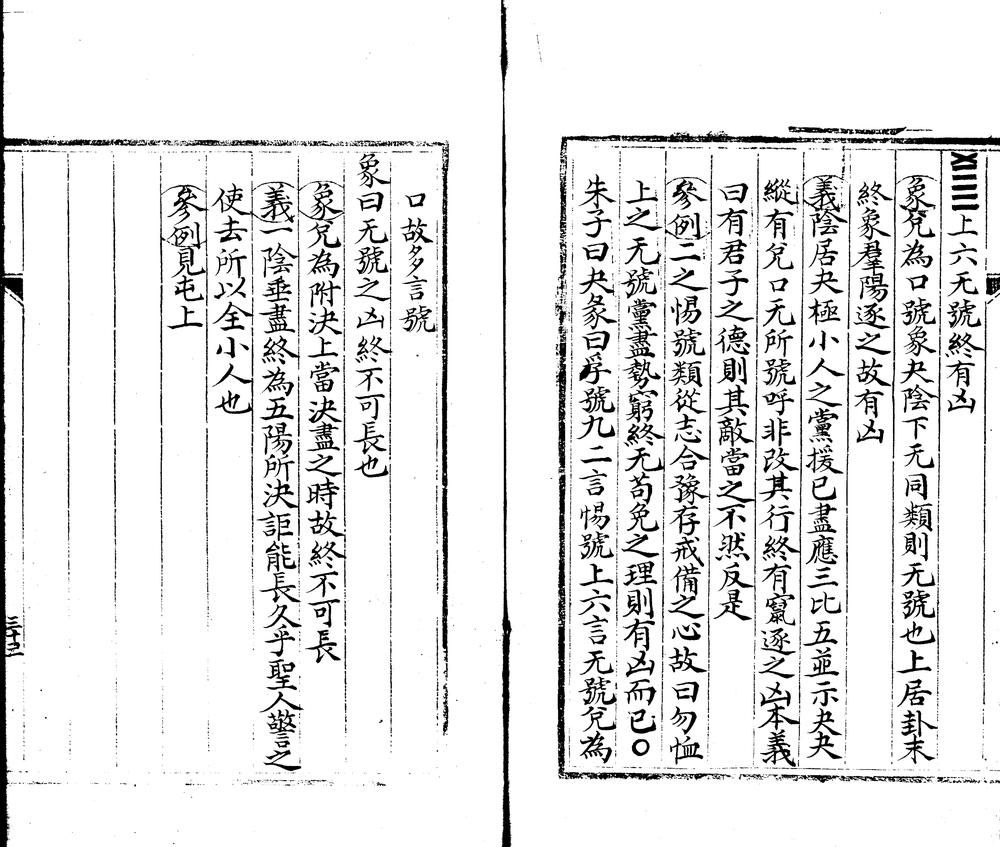 上六无號終有凶
象兌為口號象夬陰下无同類則无號也上居卦末
終象羣陽逐之故有凶
義陰居夬極小人之黨援已盡應三比五並示夬夬
縱有兌口无所號呼非改其行終有竄逐之凶本義
曰有君子之德則其敵當之不然反是
參例二之惕號類從志合豫存戒備之心故曰勿恤
上之无號黨盡勢窮終无苟免之理則有凶而已○
朱子曰夬彖曰孚號九二言惕號上六言无號兌為
口故多言號
象曰无號之凶終不可長也
象兌為附決上當決盡之時故終不可長
義一陰垂盡終為五陽所決詎能長久乎聖人警之
使去所以全小人也
參例見屯上